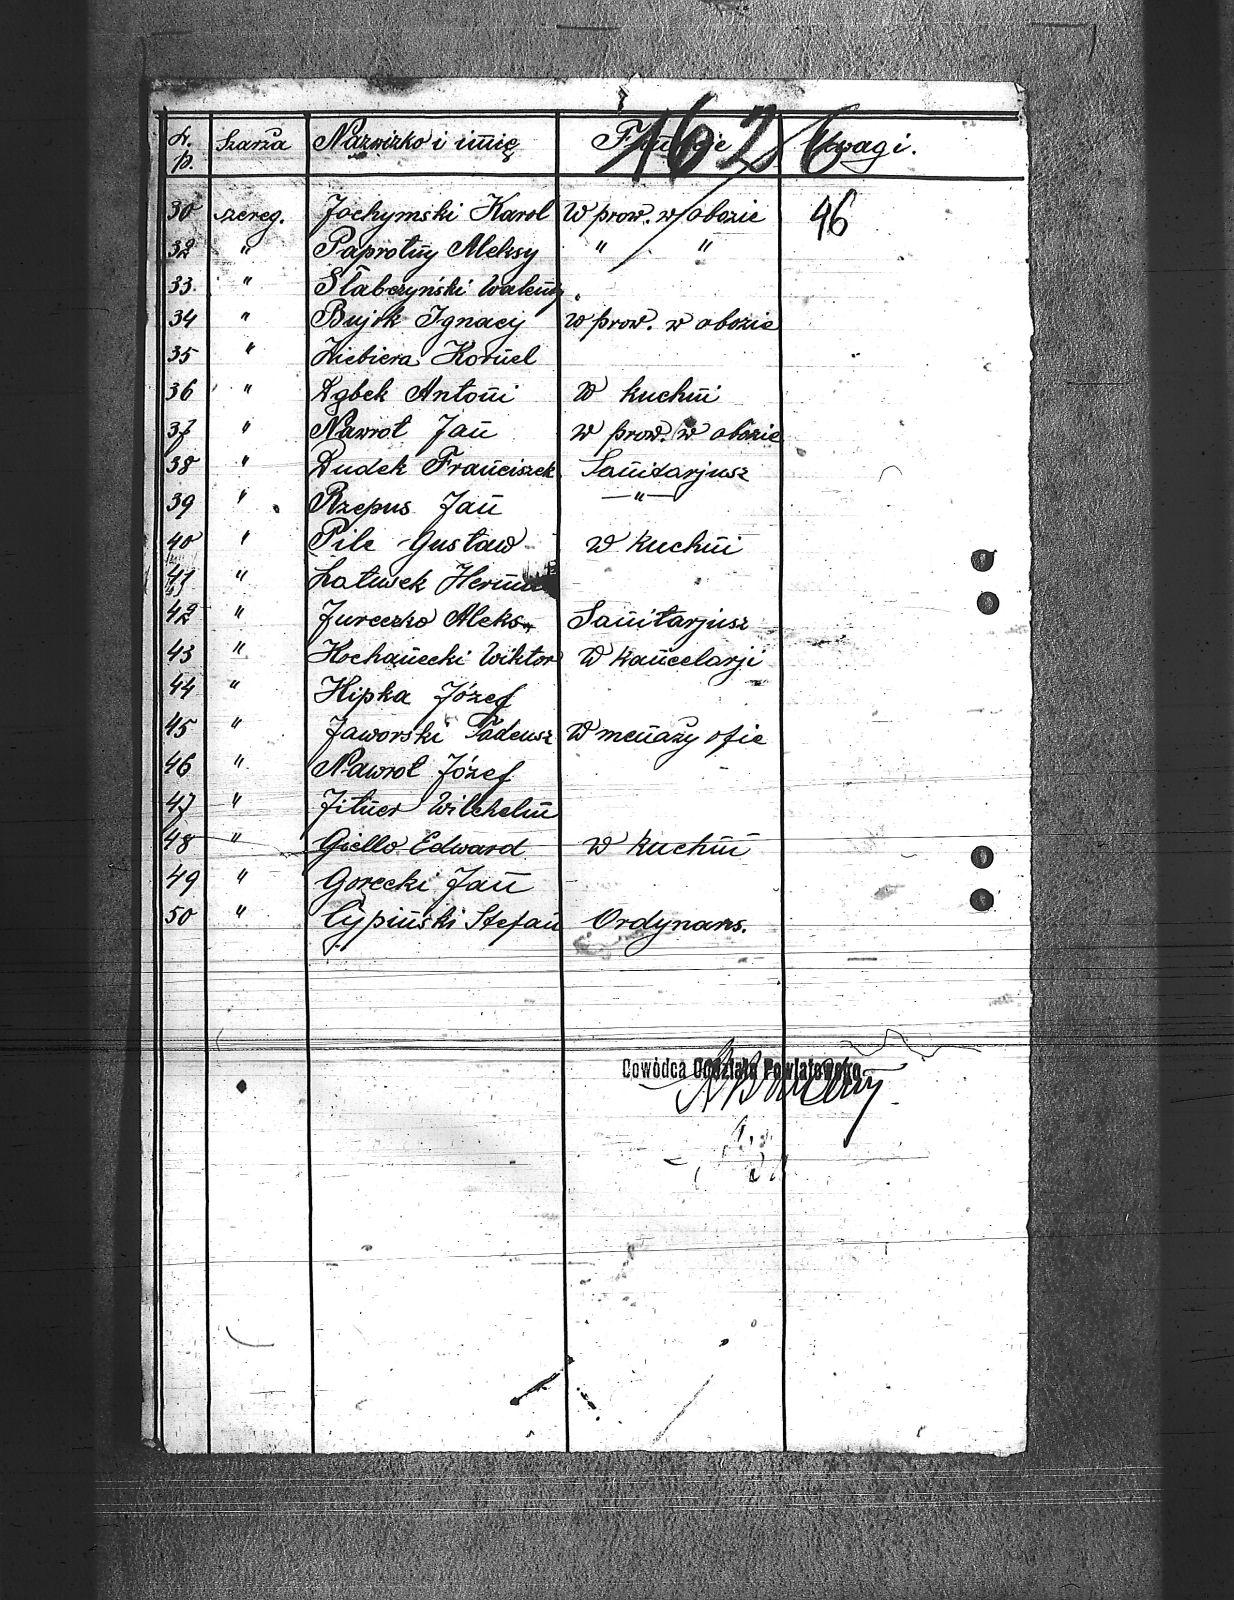 1626
L. p. Szarża Nazwisko i imię Funkcje Uwagi.
30 szereg. Jochymski Karol w prow. w obozie 46
32 " Paprotny Aleksy " "
33. " Słabczyński Walenty
34 " Bujok Ignacy w prow. w obozie
35 " Kornel
36 " Ząbek Antoni w kuchni
37 " Nawrot Jan w prow. w obozie
38 " Dudek Franciszek Sanitarjusz
39 " Rzepus Jan — " —
40 " Pile Gustaw w kuchni
41 " Latusek
42 " Jureczko Aleks. Sanitarjusz
43 " Kochanecki Wiktor w kancelarji
44 " Hipka Józef
45 " Jaworski Tadeusz w menaży ofic
46 " Nawrot Józef
47 " Jitner Wilchelm
48 " Giello Edward w kuchni
49 " Gorecki Jan
50 " Cypiński Stefan Ordynans.
Dowódca Oddziału Powiatowego